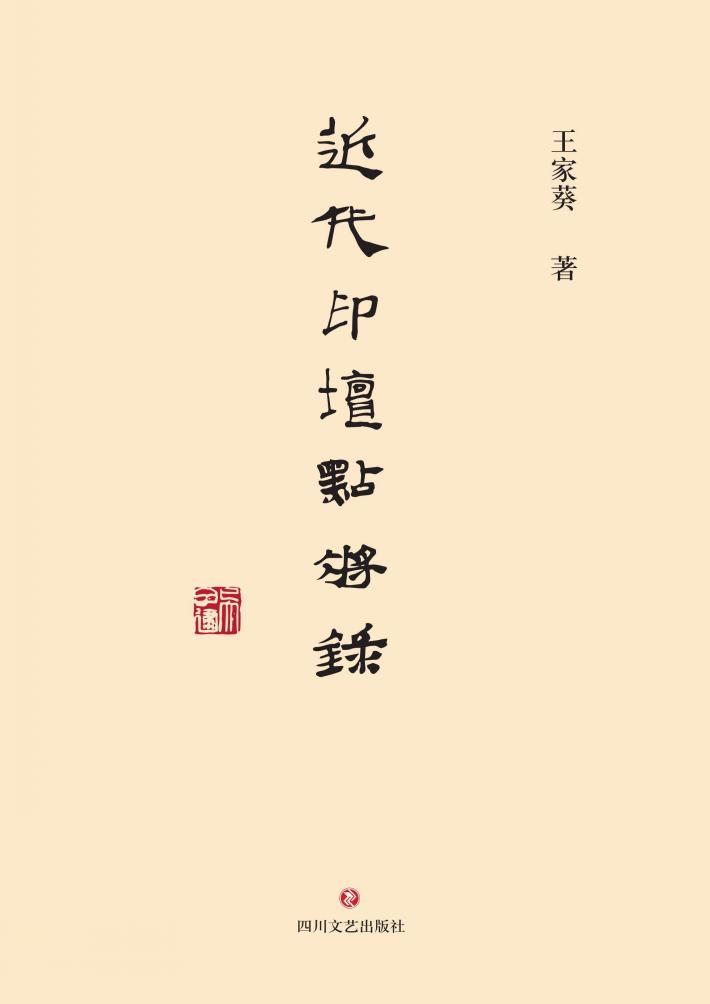 王家葵 著
近代印壇點將録
四川文艺出版社